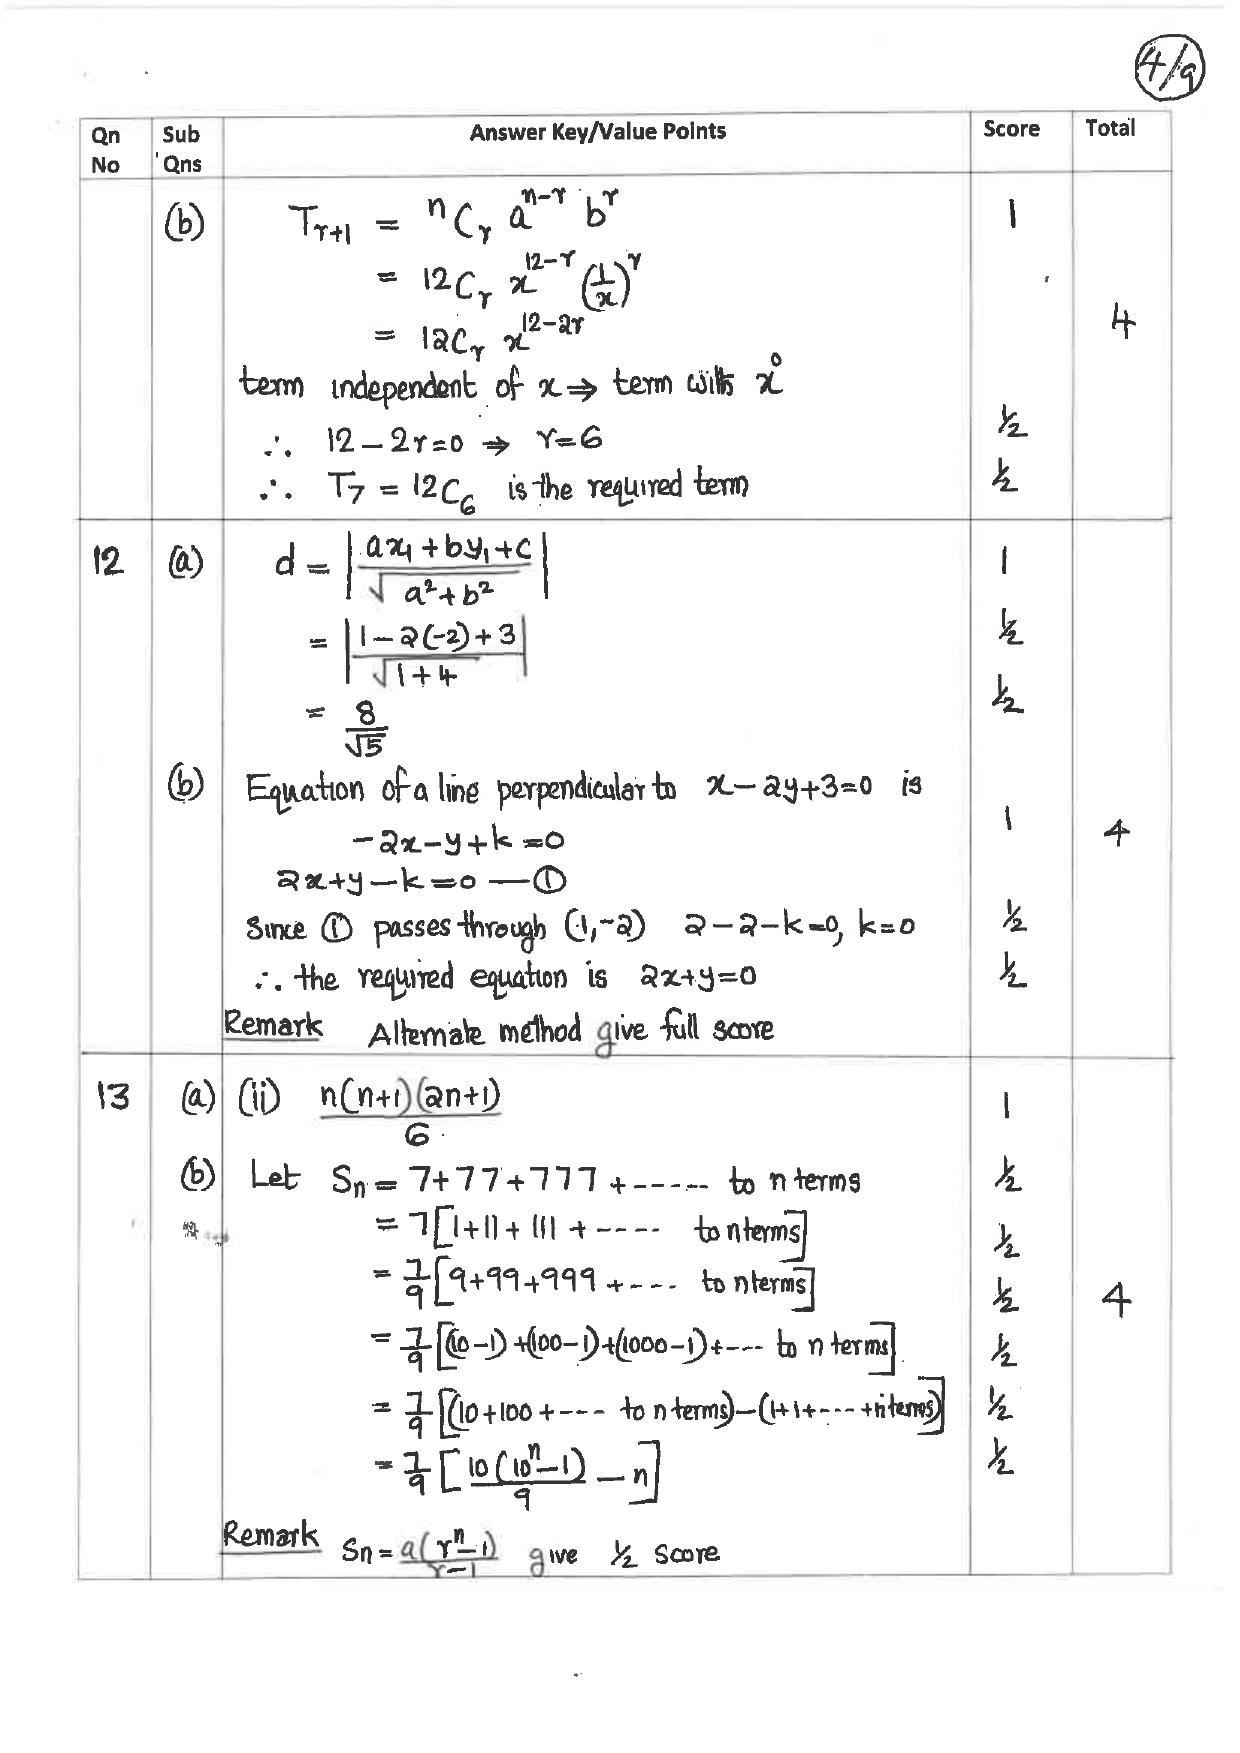 4/9
Qn No Sub Qns Answer Key/Value Points Score Total
(b) T_{r+1} = ^nC_r a^{n-r} b^r 1
= 12C_r x^{12-r} (1/x)^r
= 12C_r x^{12-2r} 4
term independent of x ⇒ term with x^0
∴ 12 - 2r = 0 ⇒ r = 6 ½
∴ T_7 = 12C_6 is the required term ½
12 (a) d = |(ax_1 + by_1 + c)/√(a² + b²)| 1
= |(1 - 2(-2) + 3)/√(1 + 4)| ½
= 8/√5 ½
(b) Equation of a line perpendicular to x - 2y + 3 = 0 is
-2x - y + k = 0 1 4
2x + y - k = 0 — ①
Since ① passes through (1, -2) 2 - 2 - k = 0, k = 0 ½
∴ the required equation is 2x + y = 0 ½
Remark Alternate method give full score
13 (a) (ii) n(n+1)(2n+1)/6 1
(b) Let S_n = 7 + 77 + 777 + ----- to n terms ½
= 7[1 + 11 + 111 + ---- to n terms] ½
= 7/9 [9 + 99 + 999 + --- to n terms] ½ 4
= 7/9 [(10-1) + (100-1) + (1000-1) + --- to n terms] ½
= 7/9 [(10 + 100 + --- to n terms) - (1 + 1 + --- + n terms)] ½
= 7/9 [10(10^n - 1)/9 - n] ½
Remark S_n = a(r^n - 1)/(r - 1) give ½ score